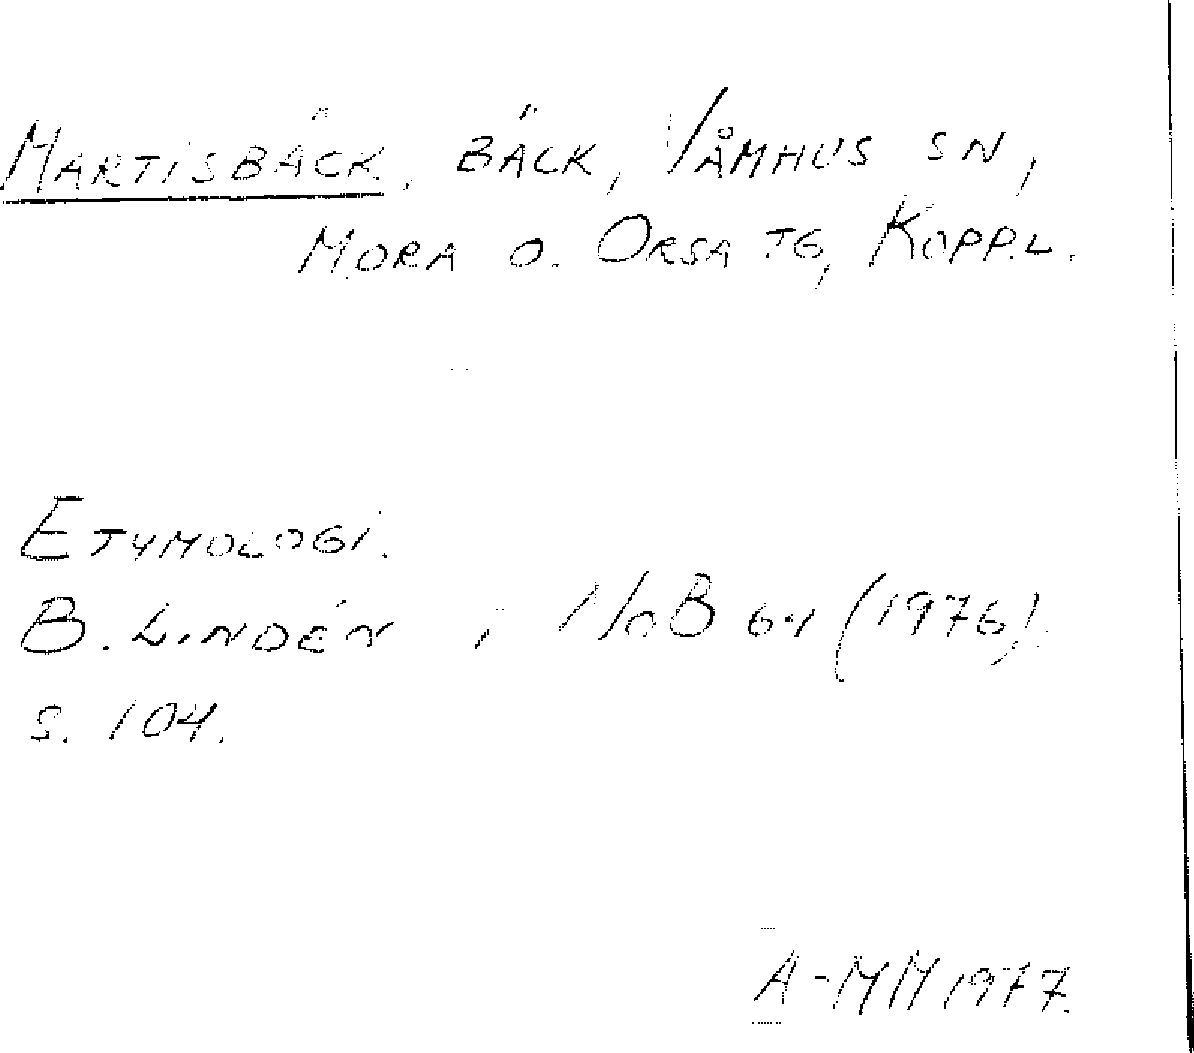 MARTISBÄCK, BÄCK, VÅMHUS SN,
MORA O. ORSA TG, KOPP.L.
ETYMOLOGI.
B. LINDÉN i NoB 64 (1976).
S. 104.
A-MM 1977.